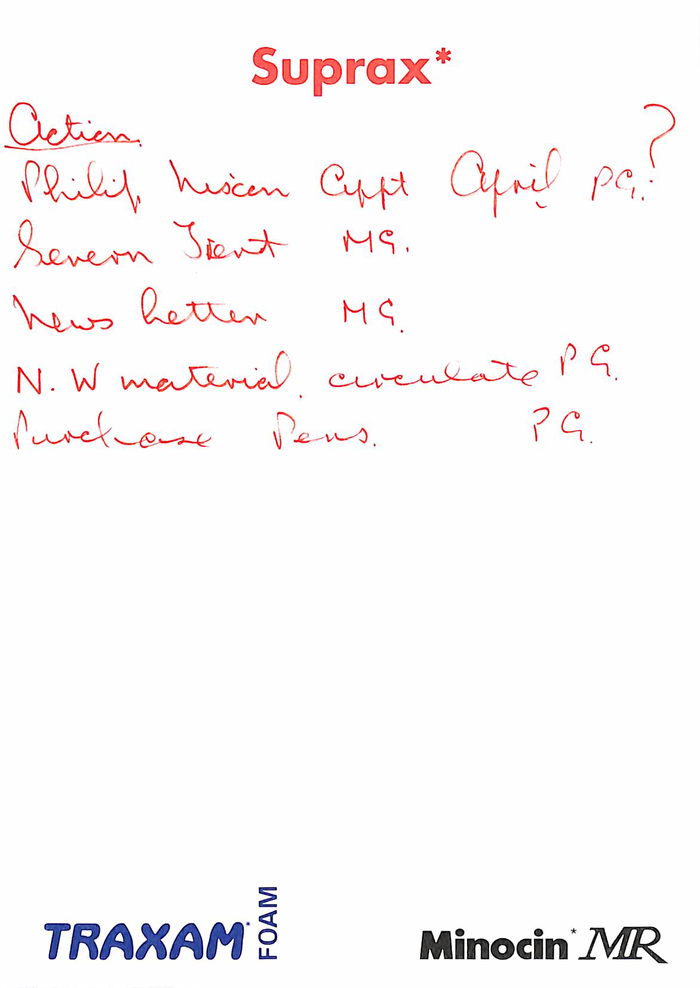 Suprax*
Action.
?
Philip Nixon Appt April PG.
Severn Trent MG.
News Letter MG.
N.W material. circulate PG.
Purchase Pens. PG.
TRAXAM* FOAM
Minocin* MR